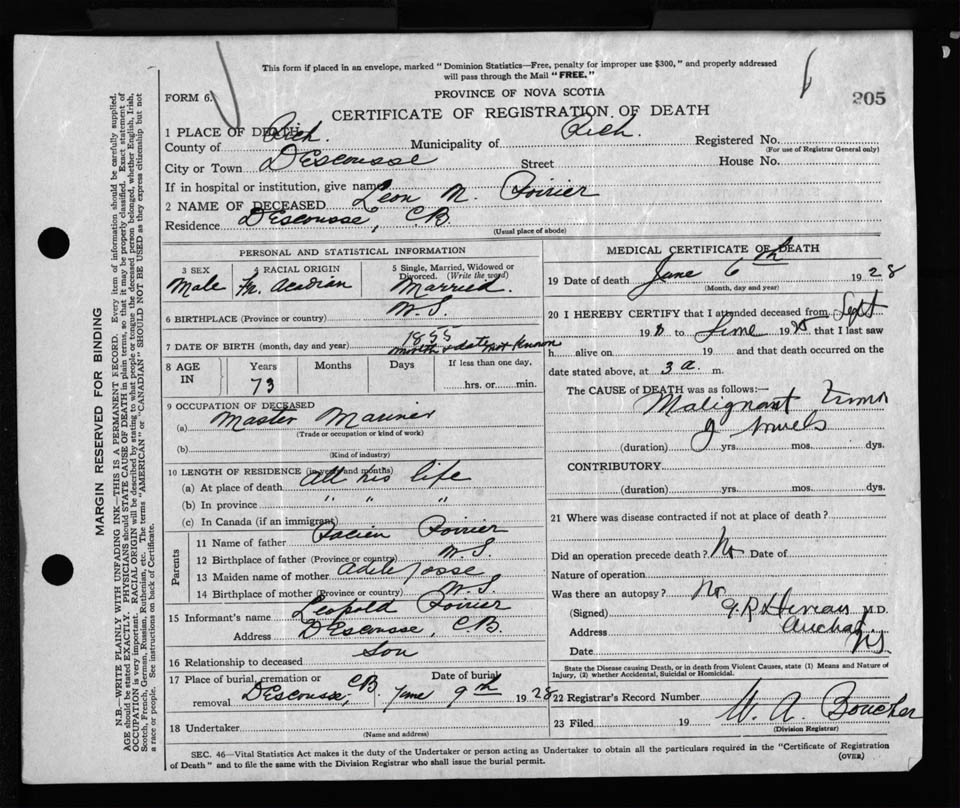 This form if placed in an envelope, marked "Dominion Statistics—Free, penalty for improper use $300," and properly addressed
will pass through the Mail "FREE."
PROVINCE OF NOVA SCOTIA
FORM 6.
CERTIFICATE OF REGISTRATION OF DEATH
205
1 PLACE OF DEATH
County of Rich. Municipality of Rich. Registered No.
(For use of Registrar General only)
City or Town D'Escousse Street House No.
If in hospital or institution, give name
2 NAME OF DECEASED Leon M. Poirier
Residence D'Escousse, C.B.
(Usual place of abode)
PERSONAL AND STATISTICAL INFORMATION
3 SEX Male
4 RACIAL ORIGIN Fr. Acadian
5 Single, Married, Widowed or
Divorced. (Write the word)
Married.
6 BIRTHPLACE (Province or country) N.S.
7 DATE OF BIRTH (month, day and year) 1855
month & date not known
8 AGE IN Years 73 Months Days If less than one day,
hrs. or min.
9 OCCUPATION OF DECEASED
(a) Master Mariner
(Trade or occupation or kind of work)
(b)
(Kind of industry)
10 LENGTH OF RESIDENCE (in years and months)
(a) At place of death All his life
(b) In province " " "
(c) In Canada (if an immigrant)
Parents
11 Name of father Poirier
12 Birthplace of father (Province or country) N.S.
13 Maiden name of mother Adele Josse
14 Birthplace of mother (Province or country) N.S.
15 Informant's name Leopold Poirier
Address D'Escousse, C.B.
16 Relationship to deceased Son
17 Place of burial, cremation or Date of burial
removal D'Escousse, C.B. June 9th 1928
18 Undertaker
(Name and address)
MEDICAL CERTIFICATE OF DEATH
19 Date of death June 6th 1928
(Month, day and year)
20 I HEREBY CERTIFY that I attended deceased from Sept
19 to June 1928 that I last saw
h alive on 19 and that death occurred on
date stated above, at 3 a. m.
The CAUSE of DEATH was as follows:—
Malignant Tumor
of bowels
(duration) yrs. mos. dys.
CONTRIBUTORY
(duration) yrs. mos. dys.
21 Where was disease contracted if not at place of death?
Did an operation precede death? No Date of
Nature of operation
Was there an autopsy? No
(Signed) M.D.
Address Arichat
Date N.S.
State the Disease causing Death, or in death from Violent Causes, state (1) Means and Nature of
Injury, (2) whether Accidental, Suicidal or Homicidal.
22 Registrar's Record Number
23 Filed 19 W. A. Boucher
(Division Registrar)
SEC. 46—Vital Statistics Act makes it the duty of the Undertaker or person acting as Undertaker to obtain all the particulars required in the "Certificate of Registration
of Death" and to file the same with the Division Registrar who shall issue the burial permit. (OVER)
MARGIN RESERVED FOR BINDING
N.B.—WRITE PLAINLY WITH UNFADING INK—THIS IS A PERMANENT RECORD. Every item of information should be carefully supplied.
AGE should be stated EXACTLY. PHYSICIANS should STATE CAUSE OF DEATH in plain terms, so that it may be properly classified. Exact statement of
OCCUPATION is very important. RACIAL ORIGIN will be described by stating to what people or tongue the deceased person belonged, whether English, Irish,
Scotch, French, German, Russian, Ruthenian, etc. The terms "AMERICAN" or "CANADIAN" SHOULD NOT BE USED as they express citizenship but not
a race or people. See instructions on back of Certificate.